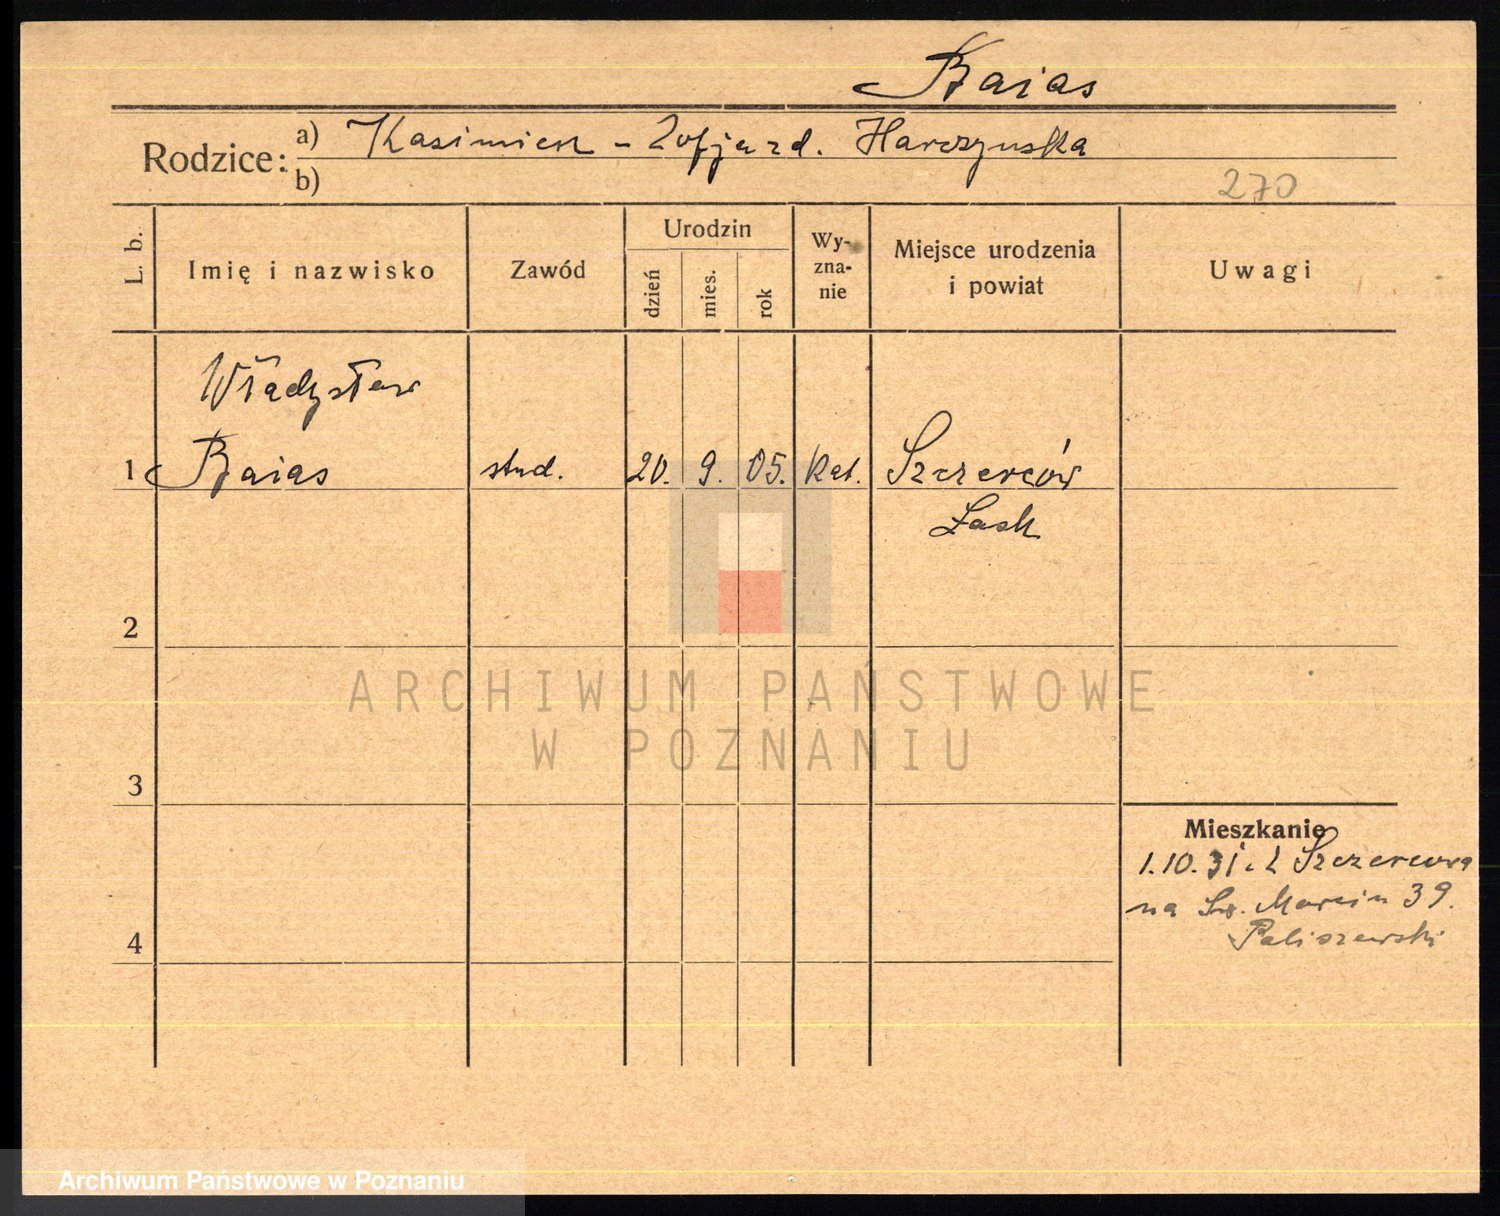 Baias
Rodzice: a) Kasimierz - Zofja zd. Harczyńska
b)
270
L. b.
Imię i nazwisko
Zawód
Urodzin
dzień
mies.
rok
Wy-
zna-
nie
Miejsce urodzenia
i powiat
Uwagi
Władysław
1 Baias stud. 20. 9. 05. kat. Szczerców
Łask
2
ARCHIWUM PAŃSTWOWE
W POZNANIU
3
Mieszkanie
1.10.31. z Szczercowa
na Św. Marcin 39.
Paliszewski
4
Archiwum Państwowe w Poznaniu